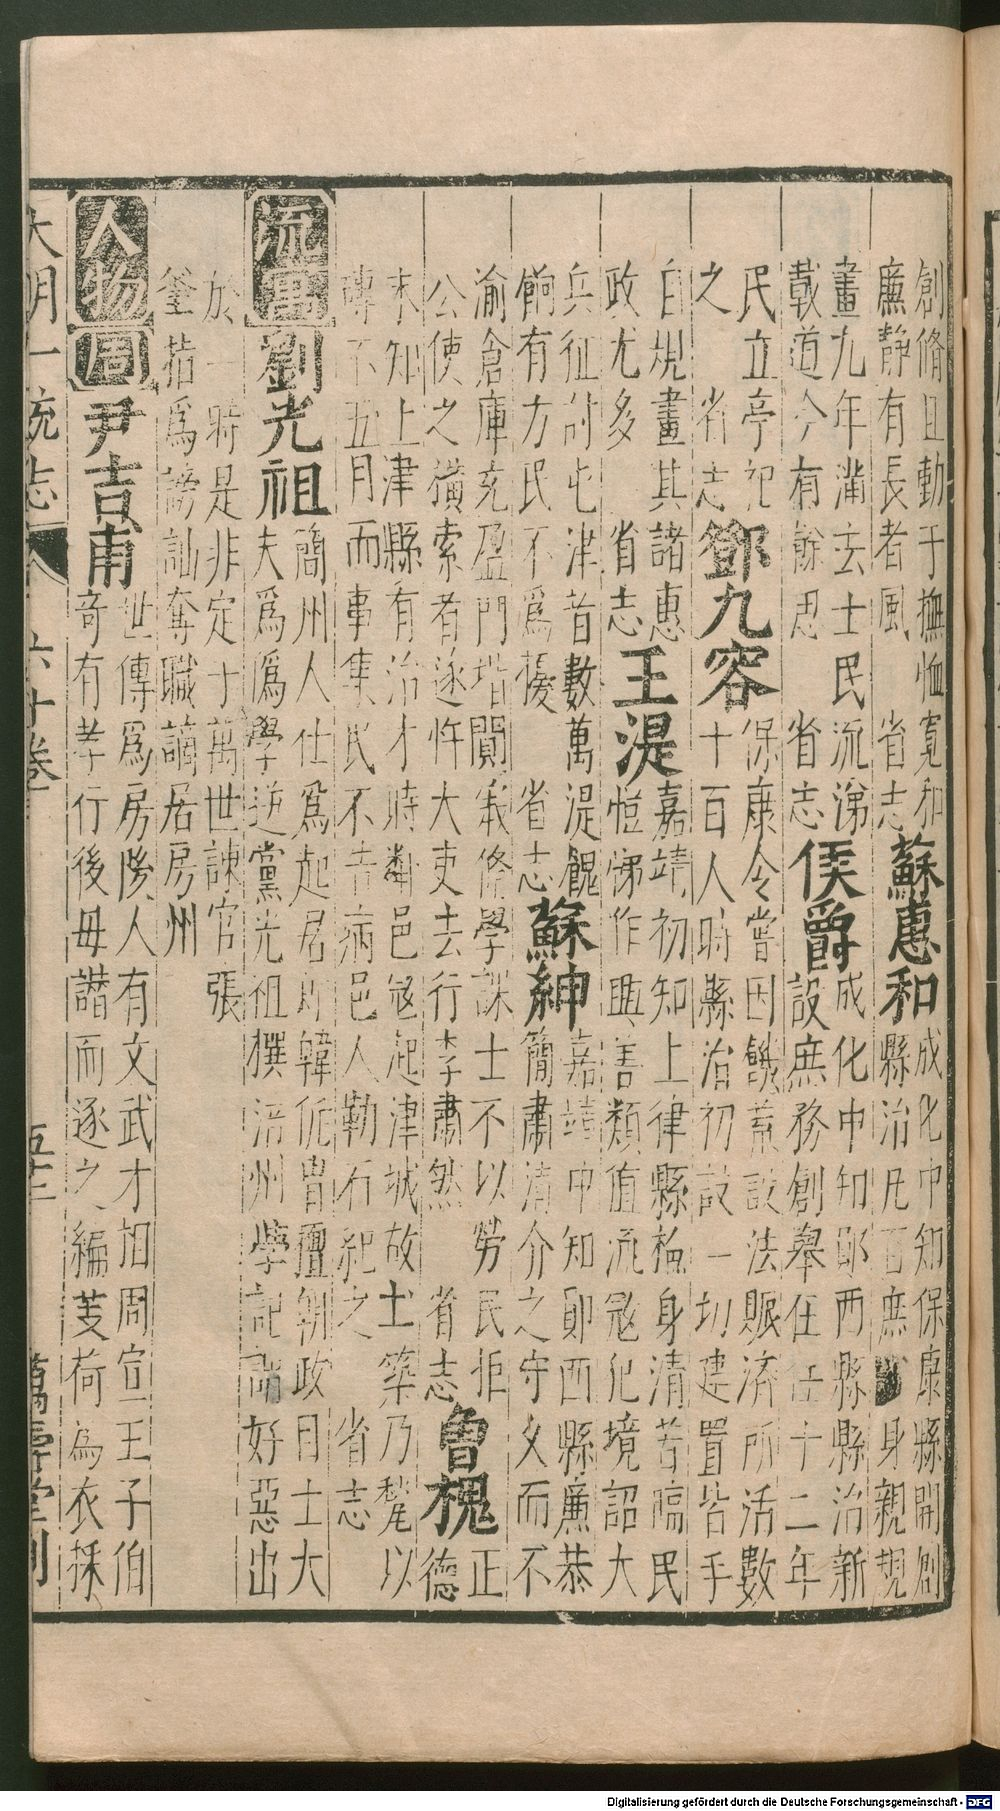 創脩且勤于撫恤寬和　省志
廉靜有長者風
蘇蕙和
成化中知保康縣開創
縣治凡百庶　身親規
畫九年滿去士民流涕
載道今有餘思　省志
侯爵
成化中知鄖西縣縣治新
設庶務創舉在任十二年
民立亭祀
之　省志
鄧九容
保康令嘗因饑荒設法賑濟所活數
十百人時縣治初設一切建置皆手
自規畫其諸惠
政尤多　省志
王湜
嘉靖初知上津縣檢身清苦臨民
愷悌作興善類值流冦犯境詔大
兵征討屯津者數萬湜餽
餉有方民不爲擾　省志
蘇紳
嘉靖中知鄖西縣廉恭
簡肅清介之守久而不
渝倉庫充盈門堦闃寂脩學課士不以勞民拒
公使之橫索者逐忤大吏去行李肅然　省志
魯槐
正德
末知上津縣有治才時鄰邑冦起津城故土築乃甃以
磚不五月而事集民不告病邑人勒石祀之　省志
流寓
劉光祖
簡州人仕爲起居郎韓侂胄擅朝政目士大
夫爲僞學逆黨光祖撰涪州學記謂好惡出
於一時是非定于萬世諫官張
釜指爲謗訕奪職謫居房州
人物
周
尹吉甫
世傳爲房陵人有文武才相周宣王子伯
奇有孝行後母譖而逐之編芰荷為衣採
大明一統志　六十卷　五十二　萬壽堂刊
Digitalisierung gefördert durch die Deutsche Forschungsgemeinschaft - DFG